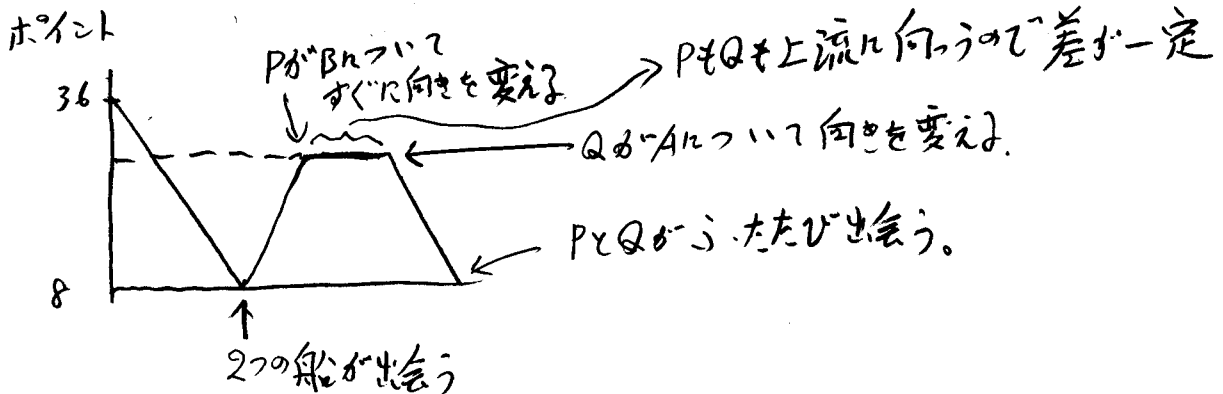 ポイント
36
PがBについて
すぐに向きを変える
PもQも上流に向うので差が一定
QがAについて向きを変える.
PとQがふたたび出会う。
8
2つの船が出会う